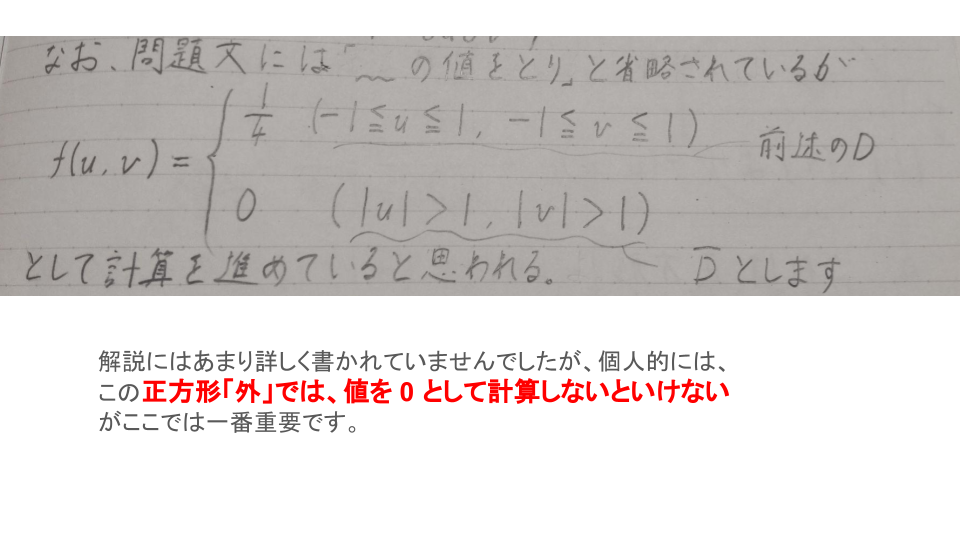 なお、問題文には「〜の値をとり」と省略されているが
f(u, v) = { 1/4 (-1≦u≦1, -1≦v≦1) 前述のD
0 (|u|>1, |v|>1)
として計算を進めていると思われる。 D̅とします
解説にはあまり詳しく書かれていませんでしたが、個人的には、
この正方形「外」では、値を 0 として計算しないといけない
がここでは一番重要です。